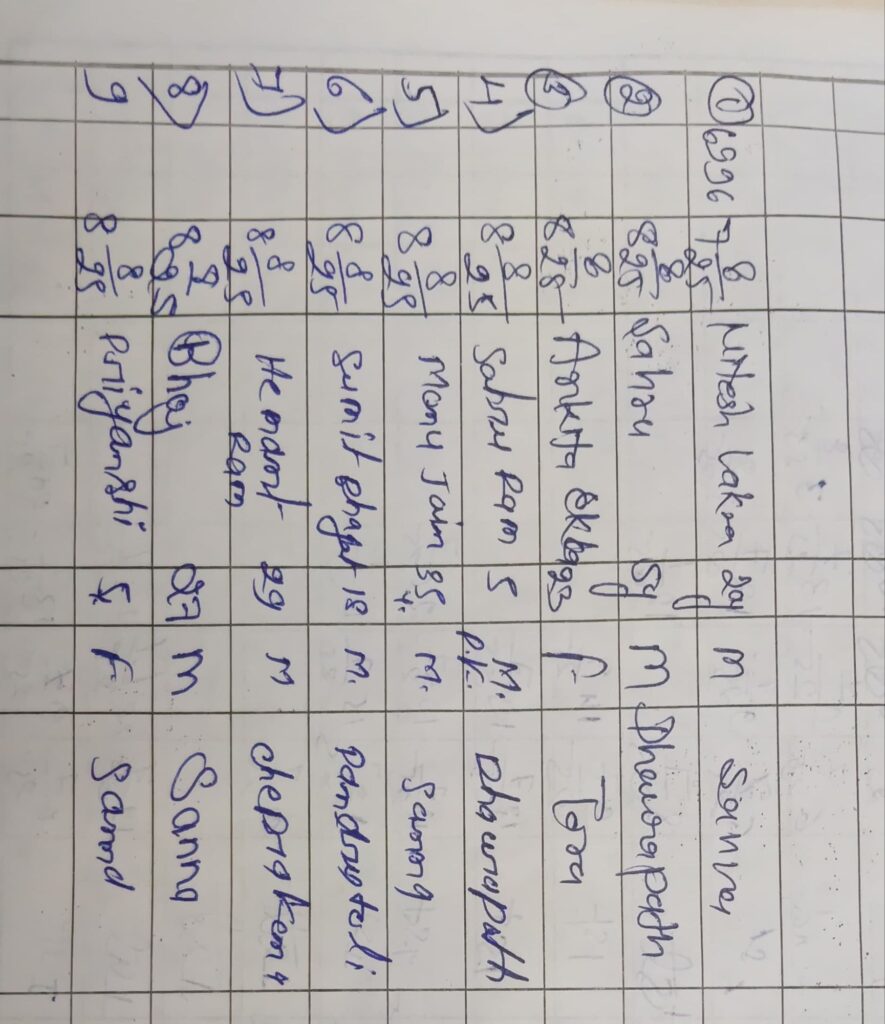 ① 6996 7/8/25 Nitesh Lakra 29y M Sanna
② 8/8/25 Sahru 5y M Dhawrapath
③ 8/8/25 Ankita Ekka 23 F. Tora
4) 8/8/25 Sahru Ram 5 M. Dhawrapath
5) 8/8/25 Monu Jain 35 y. M. Sanna
6) 8/8/25 Sumit Bhagat 18 M. Pandrutoli
7) 8/8/25 Hemant Ram 29 M
8) 8/8/25 Bhoj 27 M Sanna
9 8/8/25 Priyanshi 5 F. Sannd